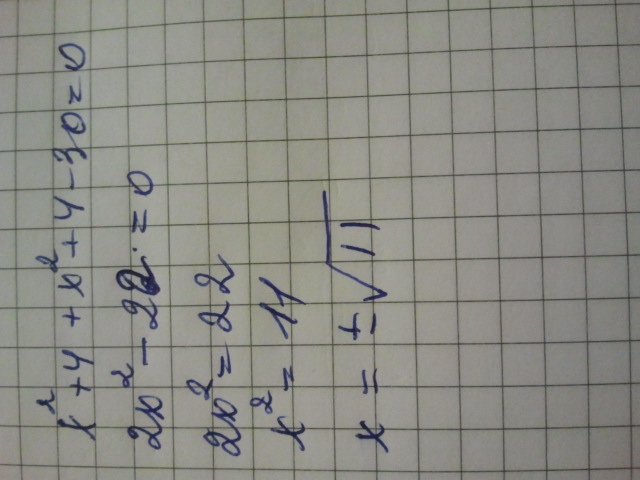 x² + 4 + x² + 4 - 30 = 0
2x² - 22 = 0
2x² = 22
x² = 11
x = ± √11